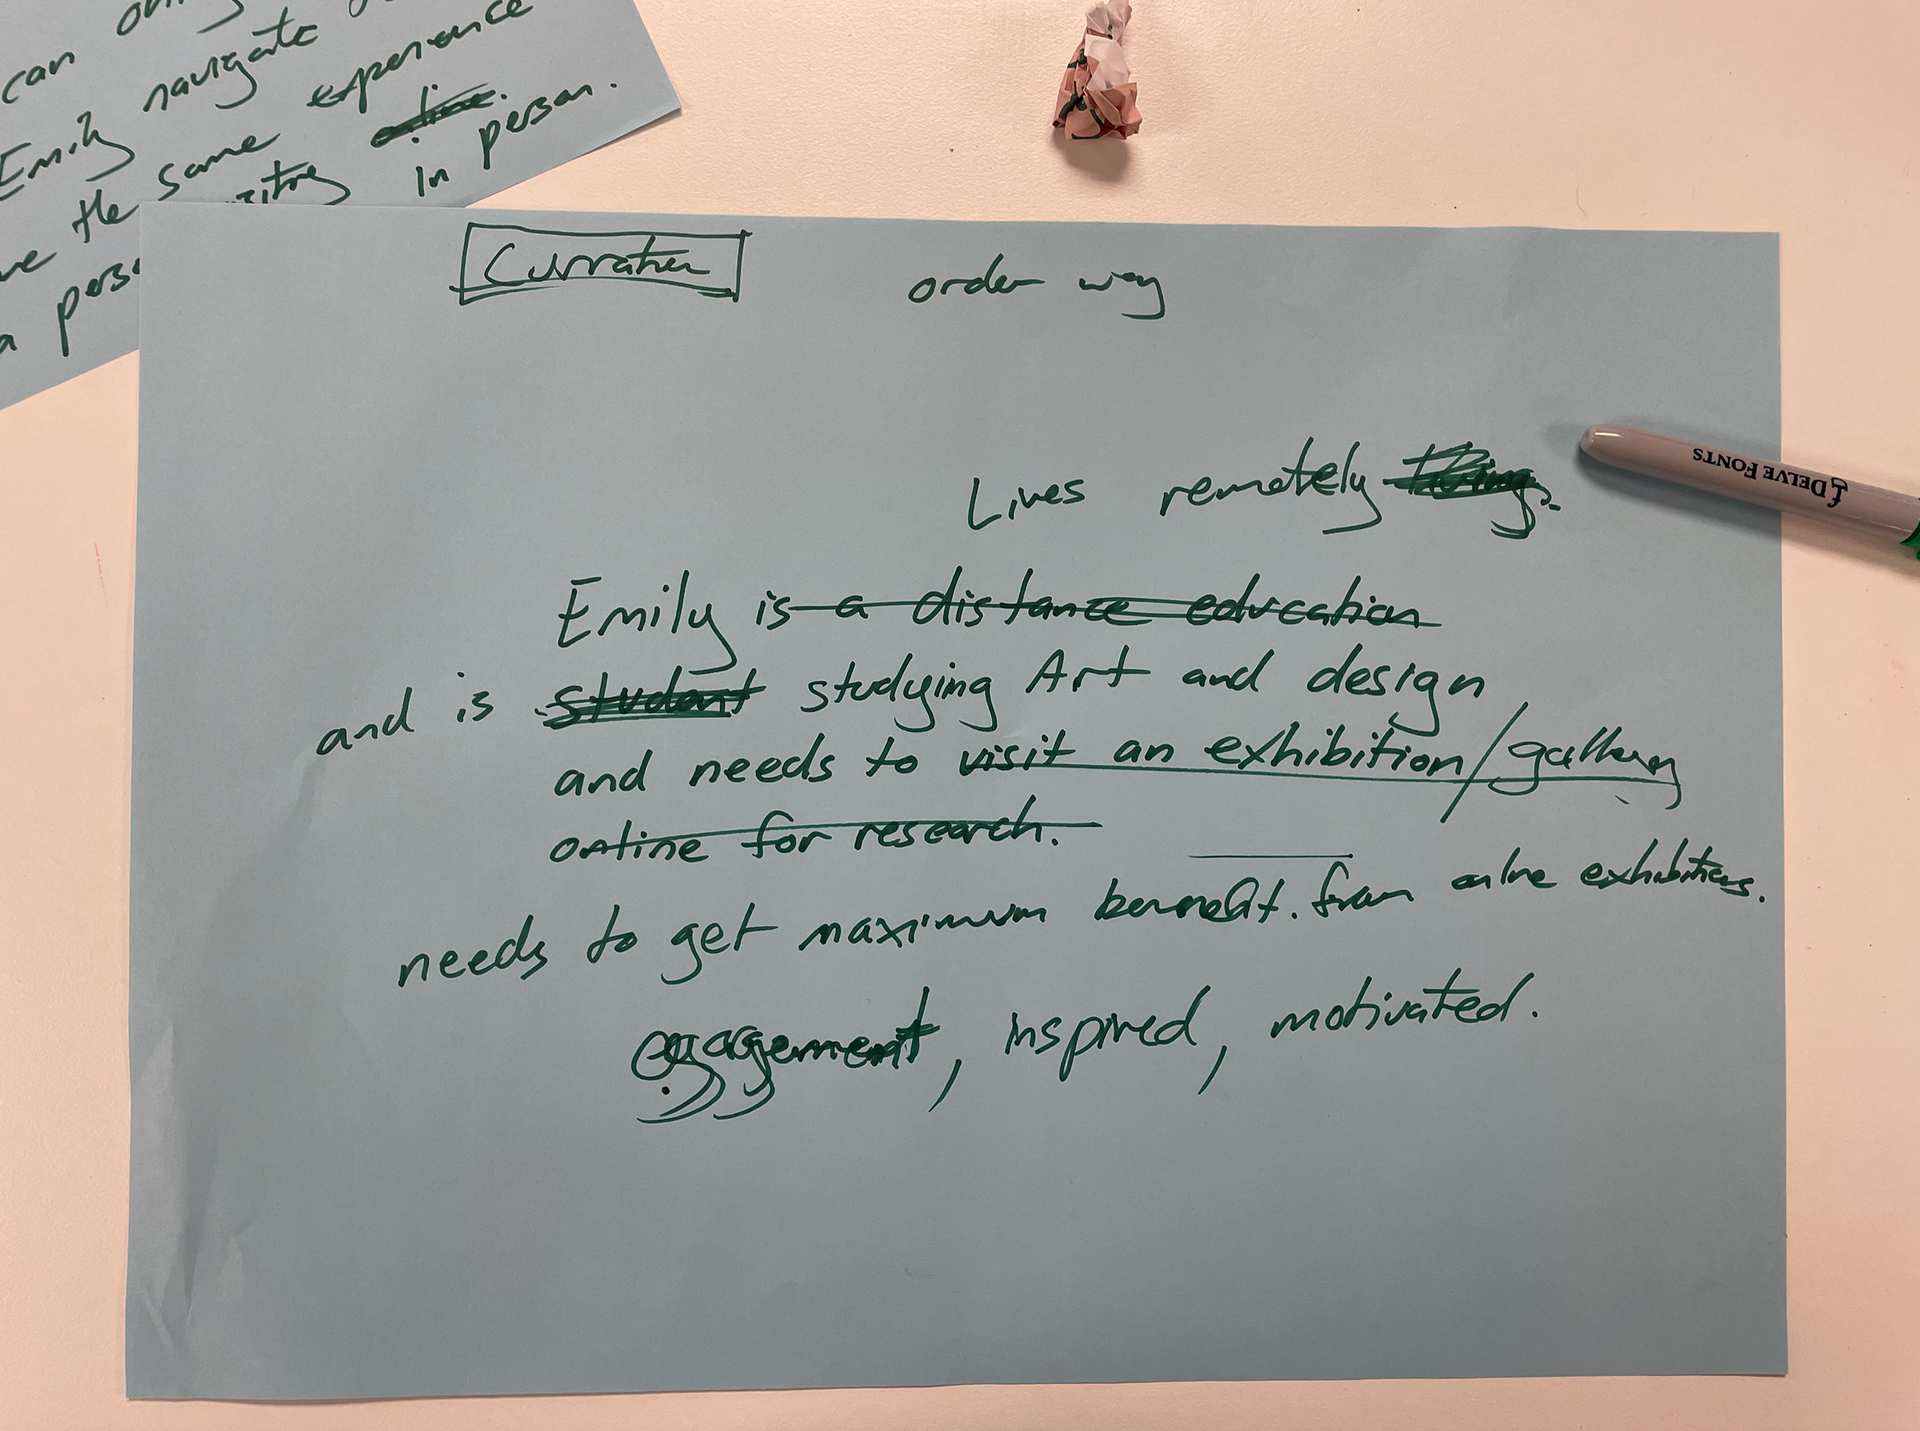 can
Emily navigate
the same experience
online.
visiting in person.
a
Curration
order way
Lives remotely living.
Emily is a distance education
and is student studying Art and design
and needs to visit an exhibition/gallery
online for research.
needs to get maximum bennefit. from online exhibitions.
engagement, inspired, motivated.
DELVE FONTS